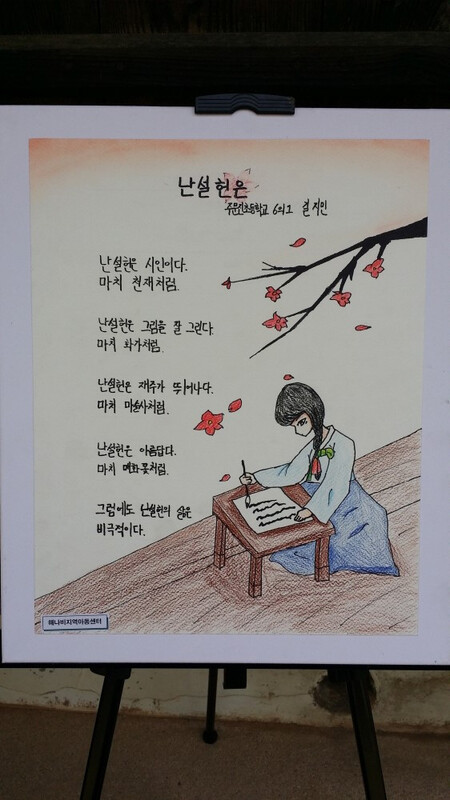 난설헌은
주문진초등학교 6의1 염지민
난설헌은 시인이다.
마치 천재처럼.
난설헌은 그림을 잘 그린다.
마치 화가처럼.
난설헌은 재주가 뛰어나다.
마치 마술사처럼.
난설헌은 아름답다.
마치 매화꽃처럼.
그럼에도 난설헌의 삶은
비극적이다.
해나비지역아동센터